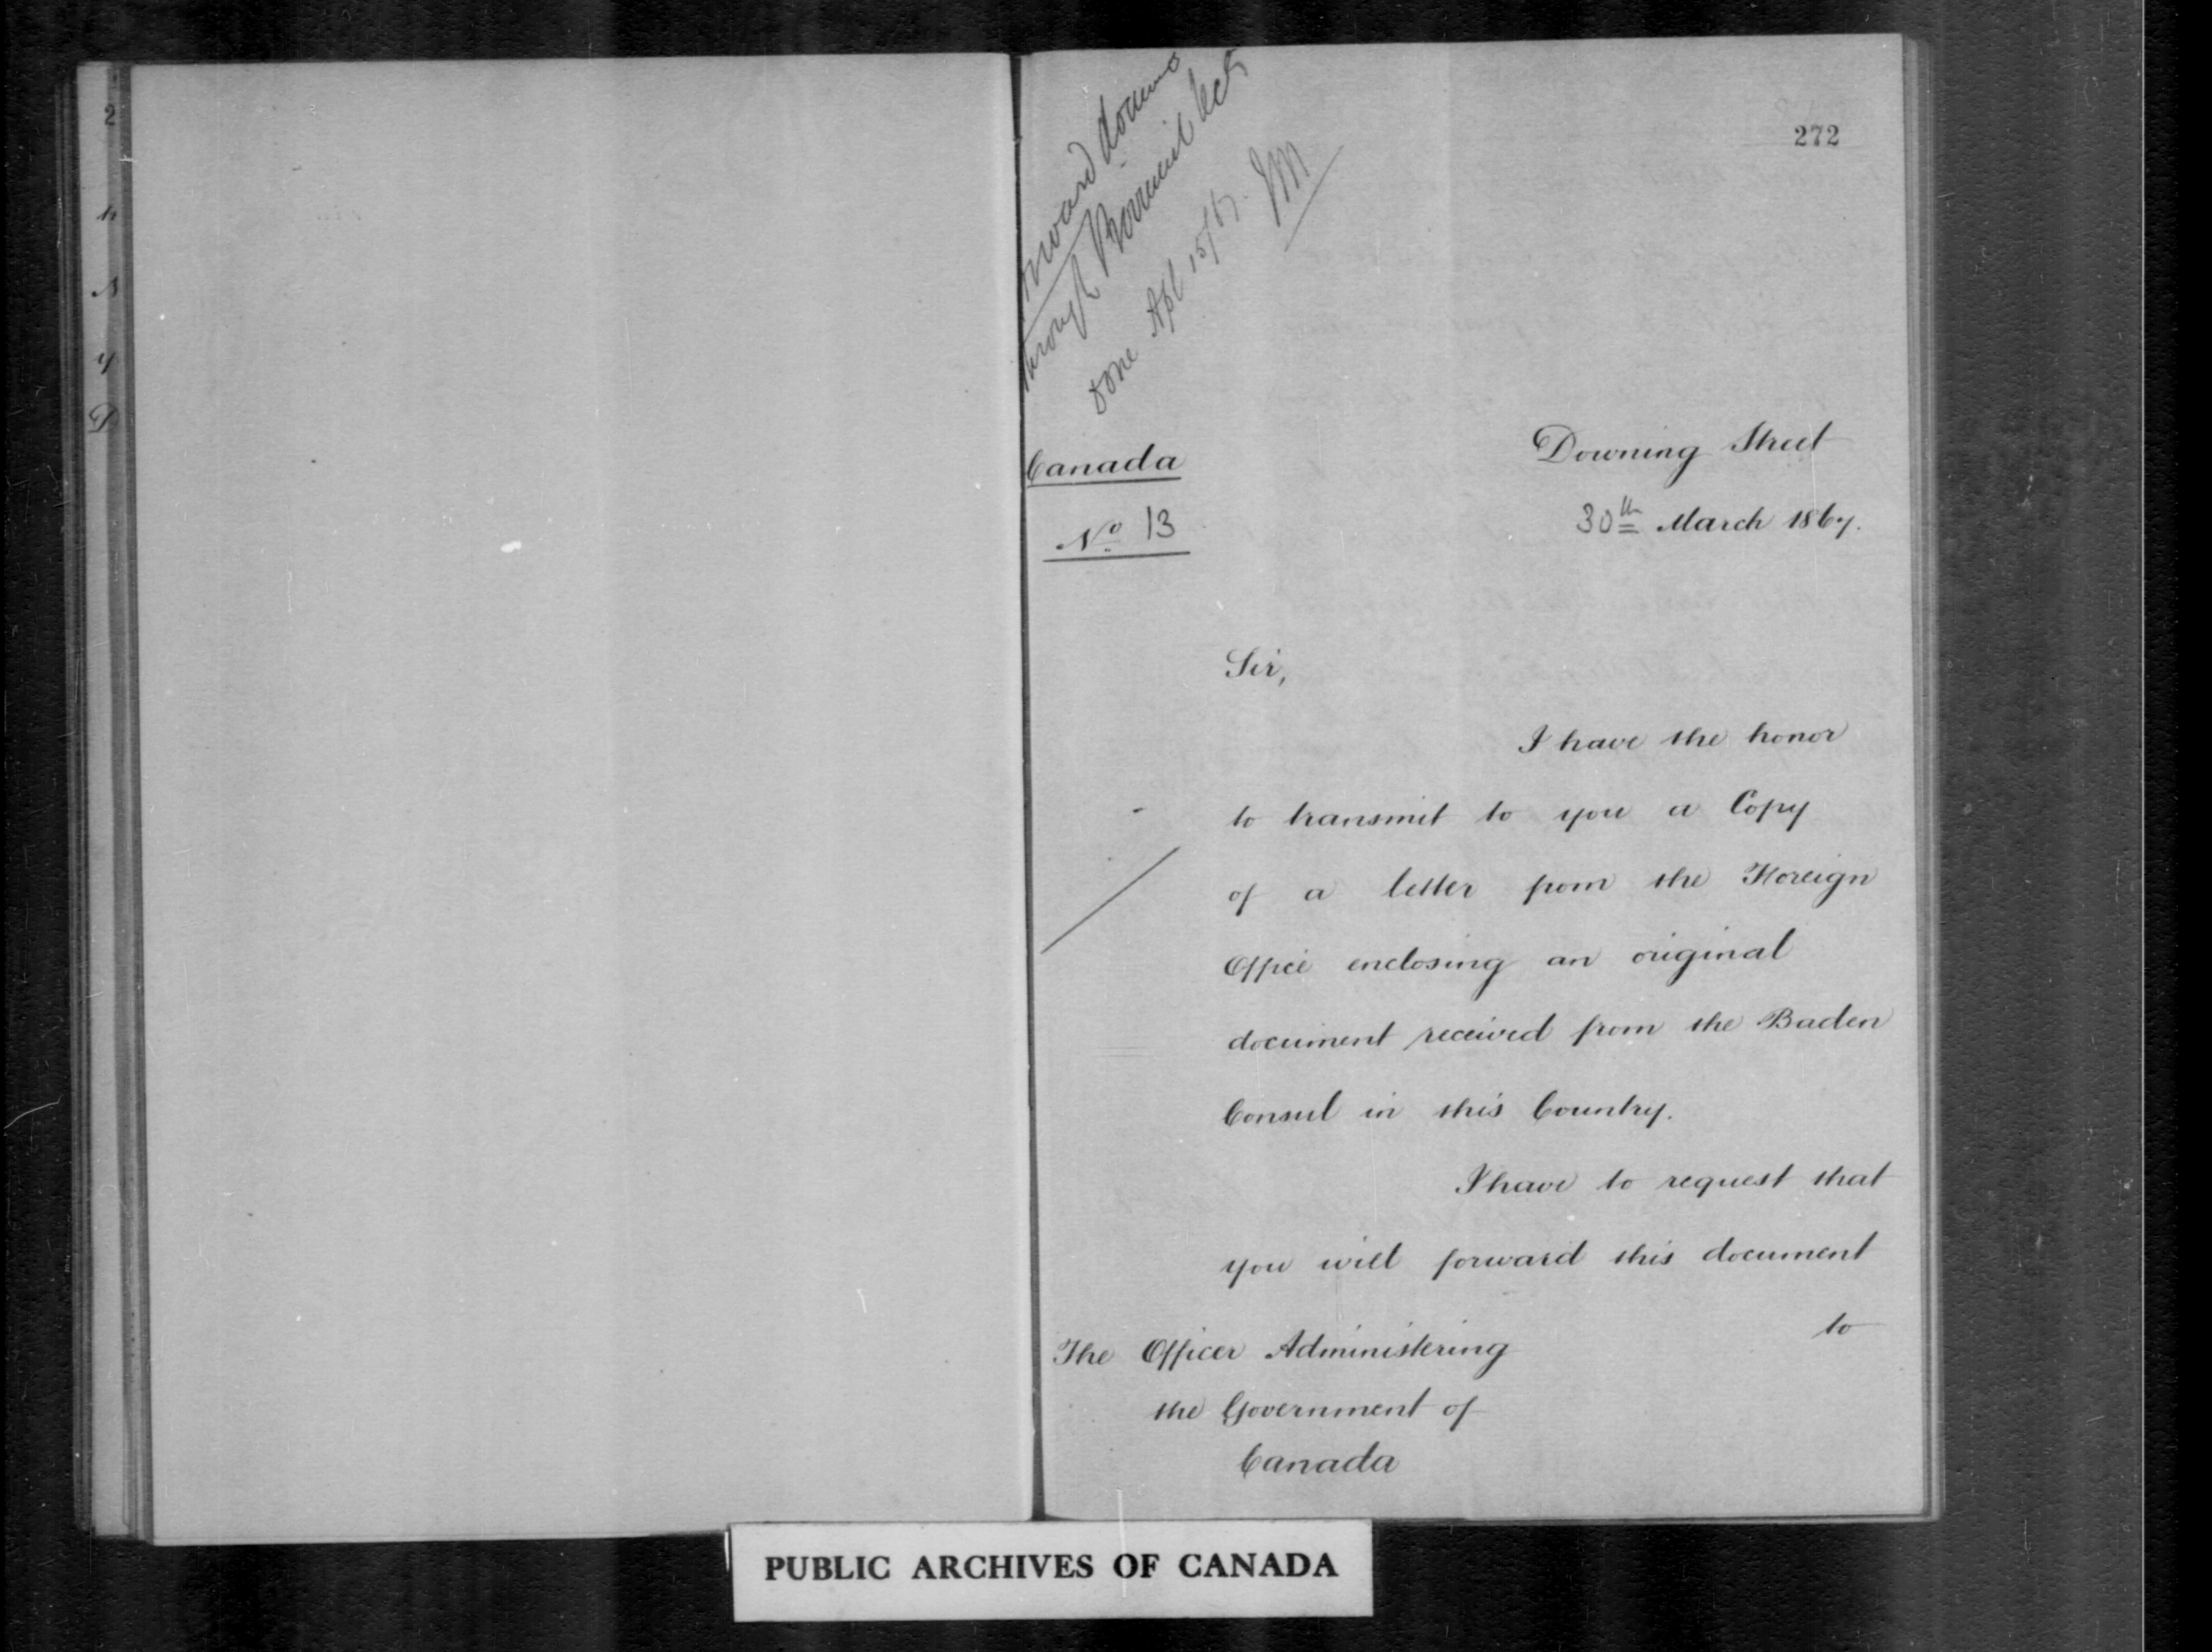 272
through Provincial Sect
Done Apl 15/67. JM
Canada
No. 13
Downing Street
30th March 1867.
Sir,
I have the honor
to transmit to you a Copy
of a letter from the Foreign
Office enclosing an original
document received from the Baden
Consul in this Country.
I have to request that
you will forward this document
to
The Officer Administering
the Government of
Canada
PUBLIC ARCHIVES OF CANADA